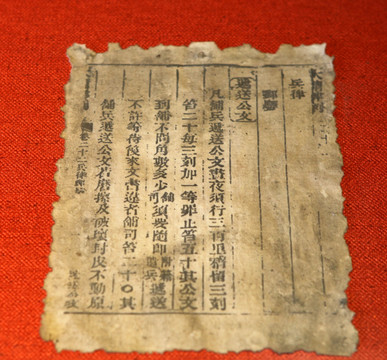 兵律
郵驛
遞送公文
凡鋪兵遞送公文晝夜須行三百里稽留三刻
笞二十每三刻加一等罪止笞五十其公文
到鋪不問角數多少鋪司須要隨即附籍遣兵遞送
不許等待後來文書違者鋪司笞二十○其
鋪兵遞送公文若磨擦及破壞封皮不動原